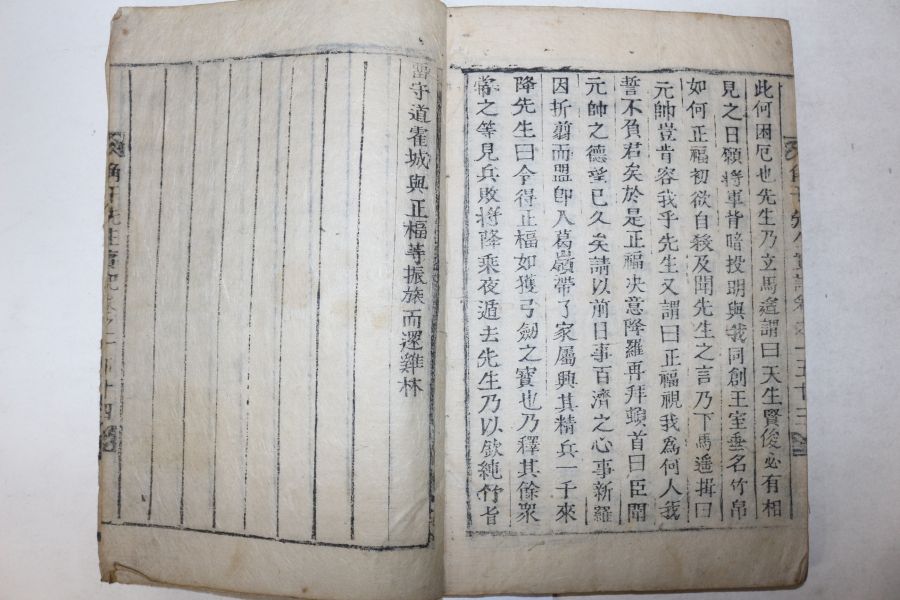 此何困厄也先生乃立馬遙謂曰天生賢俊必有相
見之日願將軍背暗投明與我同創王室垂名竹帛
如何正福初欲自殺及聞先生之言乃下馬遥揖曰
元帥豈肯容我乎先生又謂曰正福視我爲何人我
誓不負君矣於是正福决意降羅再拜頓首曰臣聞
元帥之德望已久矣請以前日事百濟之心事新羅
因折剪而盟卽人葛嶺帶了家屬與其精兵一千來
降先生曰今得正福如獲弓劔之寶也乃釋其餘衆
常之等見兵敗將降乘夜遁去先生乃以欽純竹旨
留守道霍城與正福等振旅而還雞林
角干先生實記卷之一